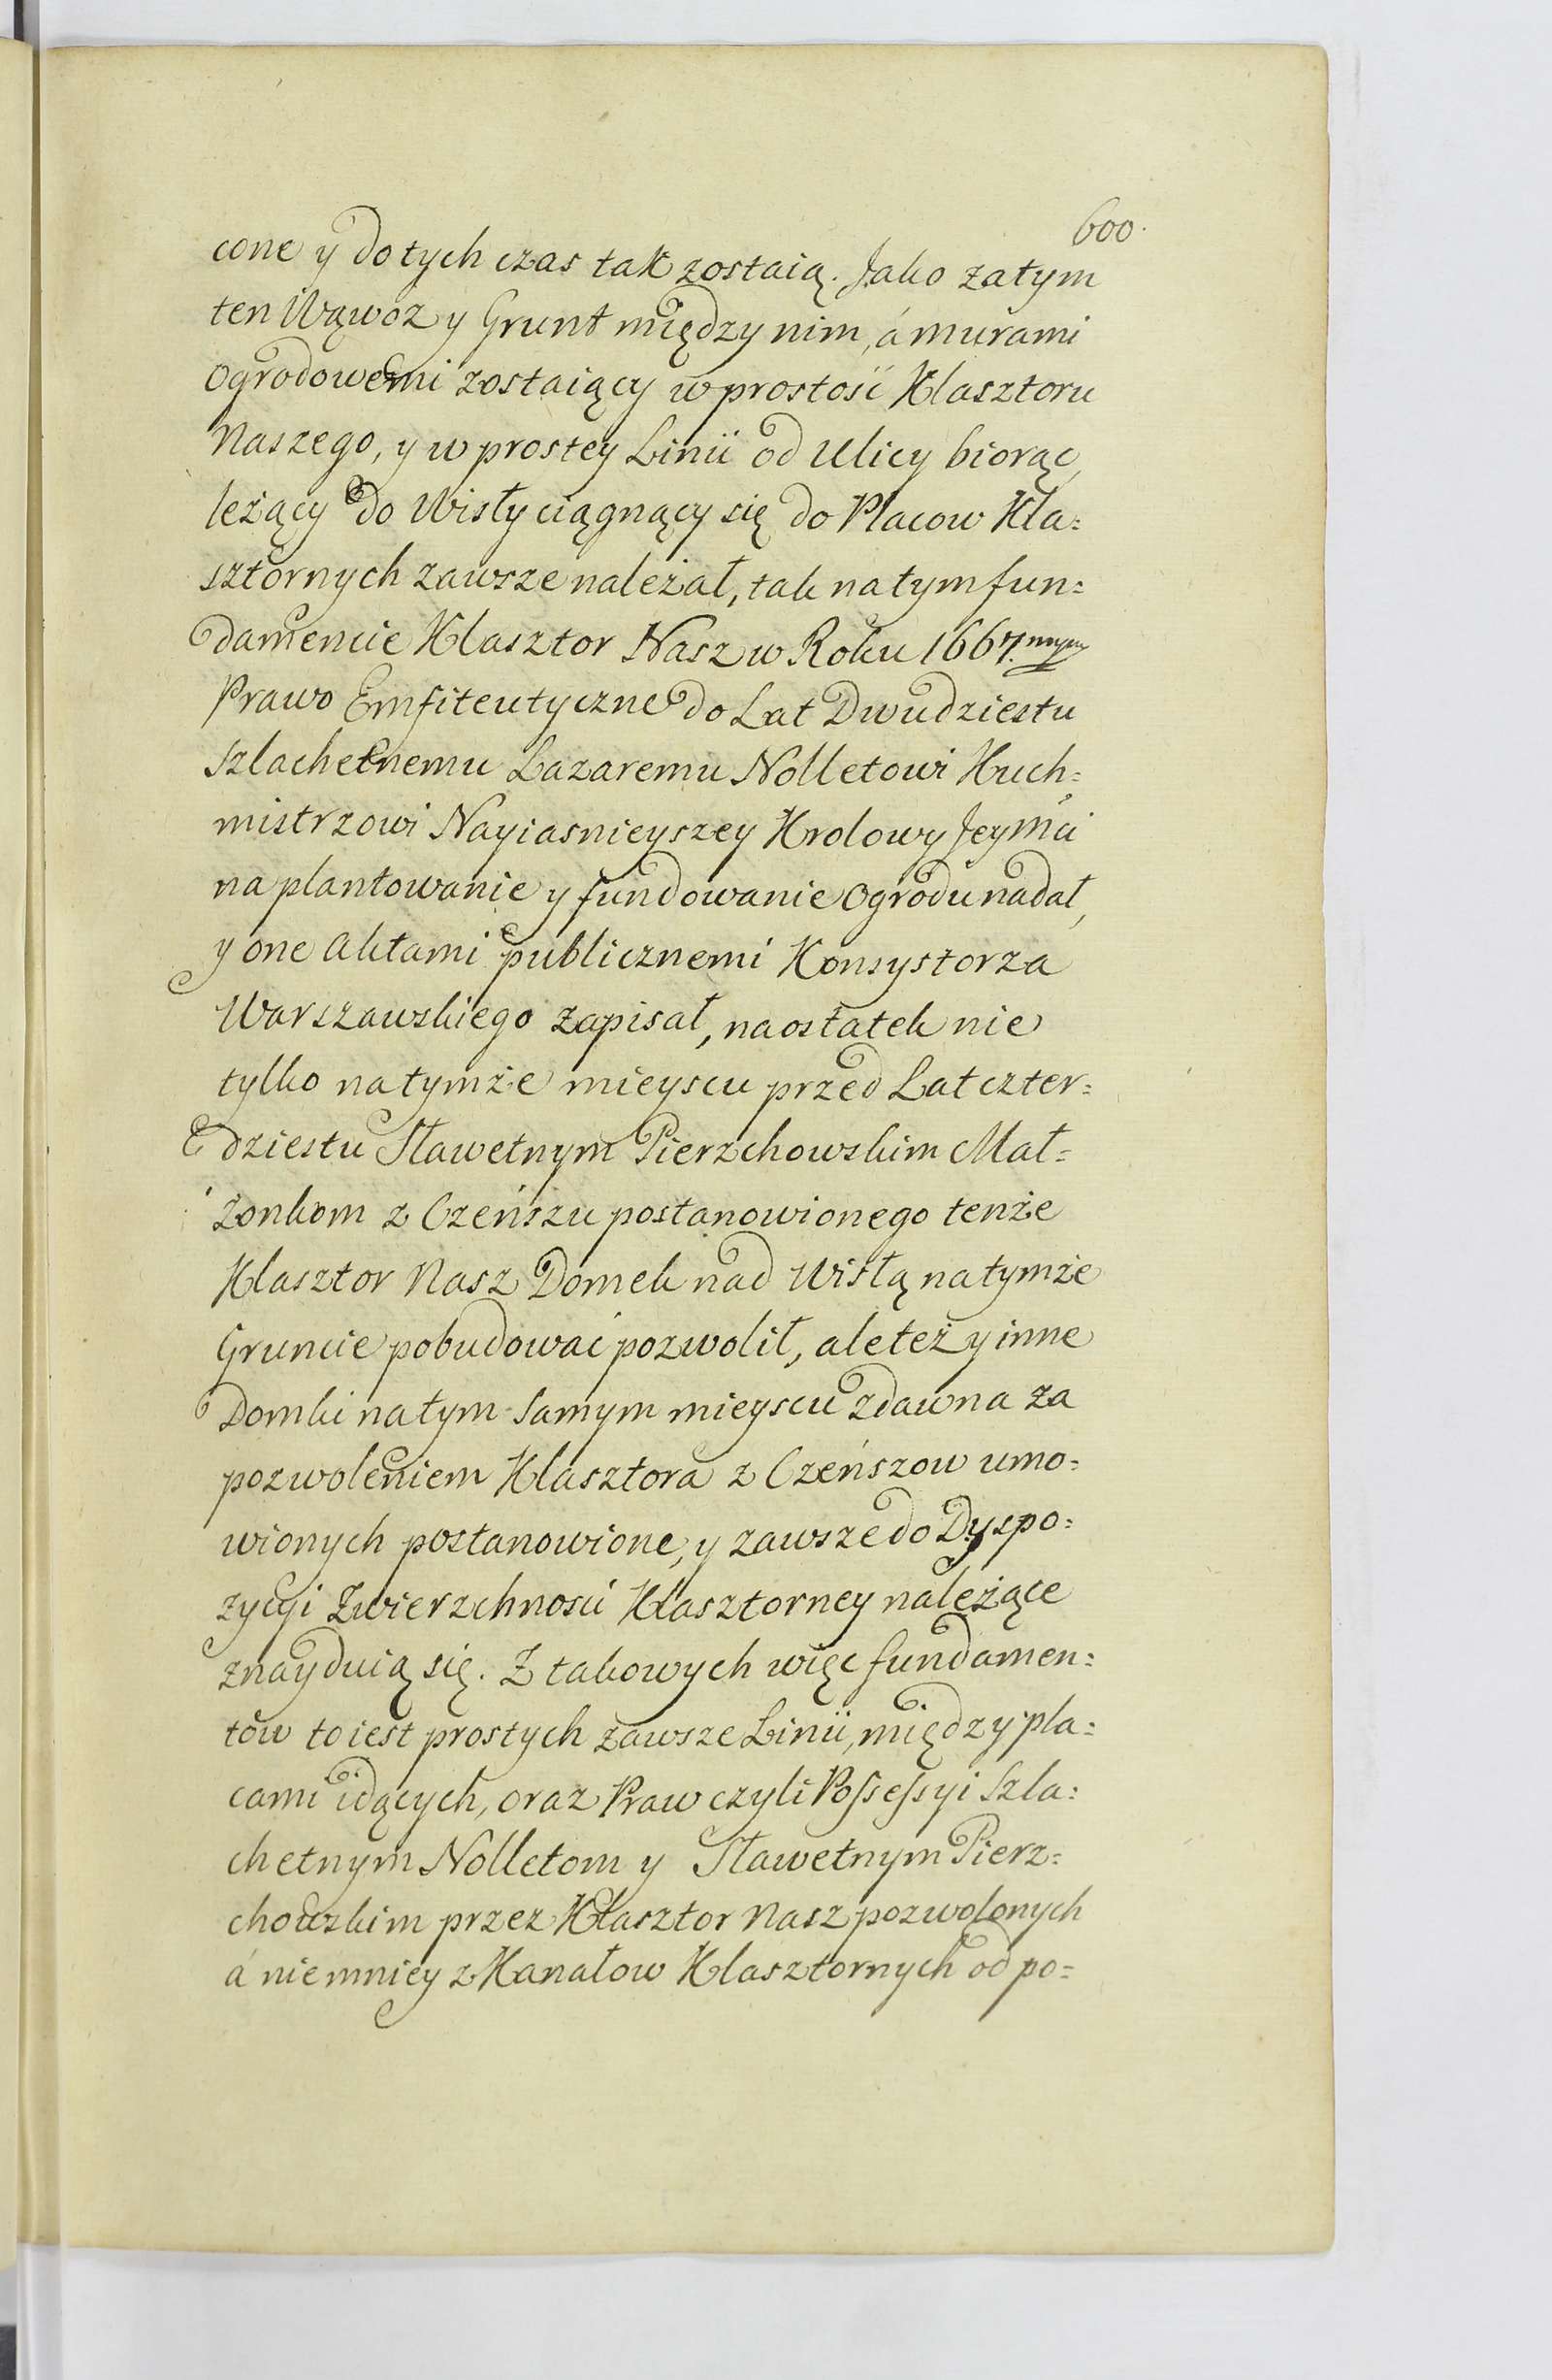 600.
cone y do tych czas tak zostaią. Jako zatym
ten Wąwoz y Grunt między nim, á murami
ogrodowemi zostaiący wprostość Klasztoru
Naszego, y w prostey Linii od Ulicy biorąc,
leżący do Wisły ciągnący się do Placow Kla=
sztornych zawsze należał, tak na tym fun=
damencie Klasztor Nasz w Roku 1667.mym
Prawo Emfiteutyczne do Lat Dwudziestu
Szlachetnemu Lazaremu Nolletowi Kuch=
mistrzowi Nayiasnieyszey Krolowy Jeymći
na plantowanie y fundowanie Ogrodu nadał,
y one Aktami publicznemi Konsystorza
Warszawskiego zapisał, naostatek nie
tylko na tymże mieyscu przed Lat czter=
dziestu Sławetnym Pierzchowskim Mał=
żonkom z Czeńszu postanowionego tenże
Klasztor Nasz Domek nad Wisłą na tymże
Gruncie pobudować pozwolił, ale też y inne
Domki na tym samym mieyscu zdawna za
pozwoleniem Klasztora z Czeńszow umo=
wionych postanowione, y zawsze do Dyspo=
zycyi Zwierzchnosci Klasztorney należące
znayduią się. Z takowych więc fundamen=
tow to iest prostych zawsze Linii, między pla=
cami idących, oraz Praw czyli Possessyi Szla=
chetnym Nolletom y Sławetnym Pierz=
chowskim przez Klasztor Nasz pozwolonych
á niemniey z Kanałow Klasztornych od po=